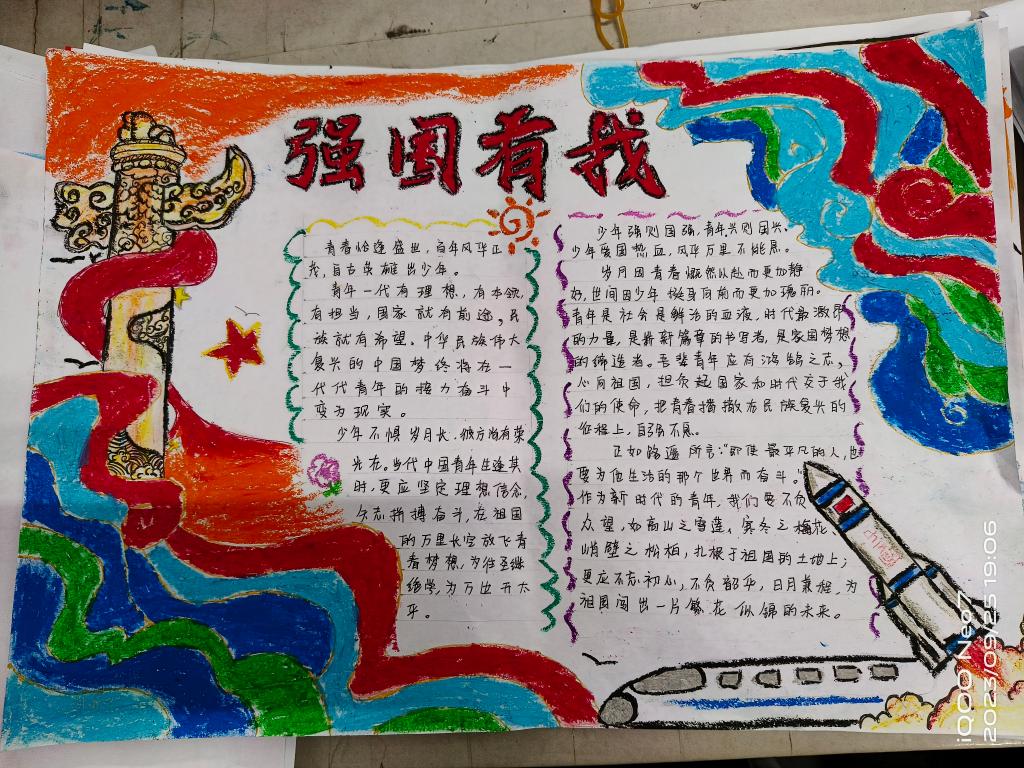 强国有我
青春恰逢盛世，百年风华正
茂，自古英雄出少年。
青年一代有理想，有本领，
有担当，国家就有前途，民
族就有希望。中华民族伟大
复兴的中国梦终将在一
代代青年的接力奋斗中
变为现实。
少年不惧岁月长，彼方尚有荣
光在。当代中国青年生逢其
时，更应坚定理想信念，
矢志拼搏奋斗，在祖国
的万里长空放飞青
春梦想，为往圣继
绝学，为万世开太
平。
少年强则国强，青年兴则国兴。
少年爱国热血，风华万里不能息。
岁月因青春慨然以赴而更加静
好，世间因少年挺身向前而更加瑰丽。
青年是社会最鲜活的血液，时代最激昂
的力量，是崭新篇章的书写者，是家国梦想
的缔造者。吾辈青年应有鸿鹄之志，
心向祖国，担负起国家和时代交于我
们的使命，把青春播撒在民族复兴的
征程上，自强不息。
正如路遥所言："即使最平凡的人，也
要为他生活的那个世界而奋斗。"
作为新时代的青年，我们要不负
众望，如高山之雪莲，寒冬之梅花
峭壁之松柏，扎根于祖国的土地上；
更应不忘初心，不负韶华，日月兼程，为
祖国闯出一片繁花似锦的未来。
china
iQOO Neo7
2023/09/25 19:06